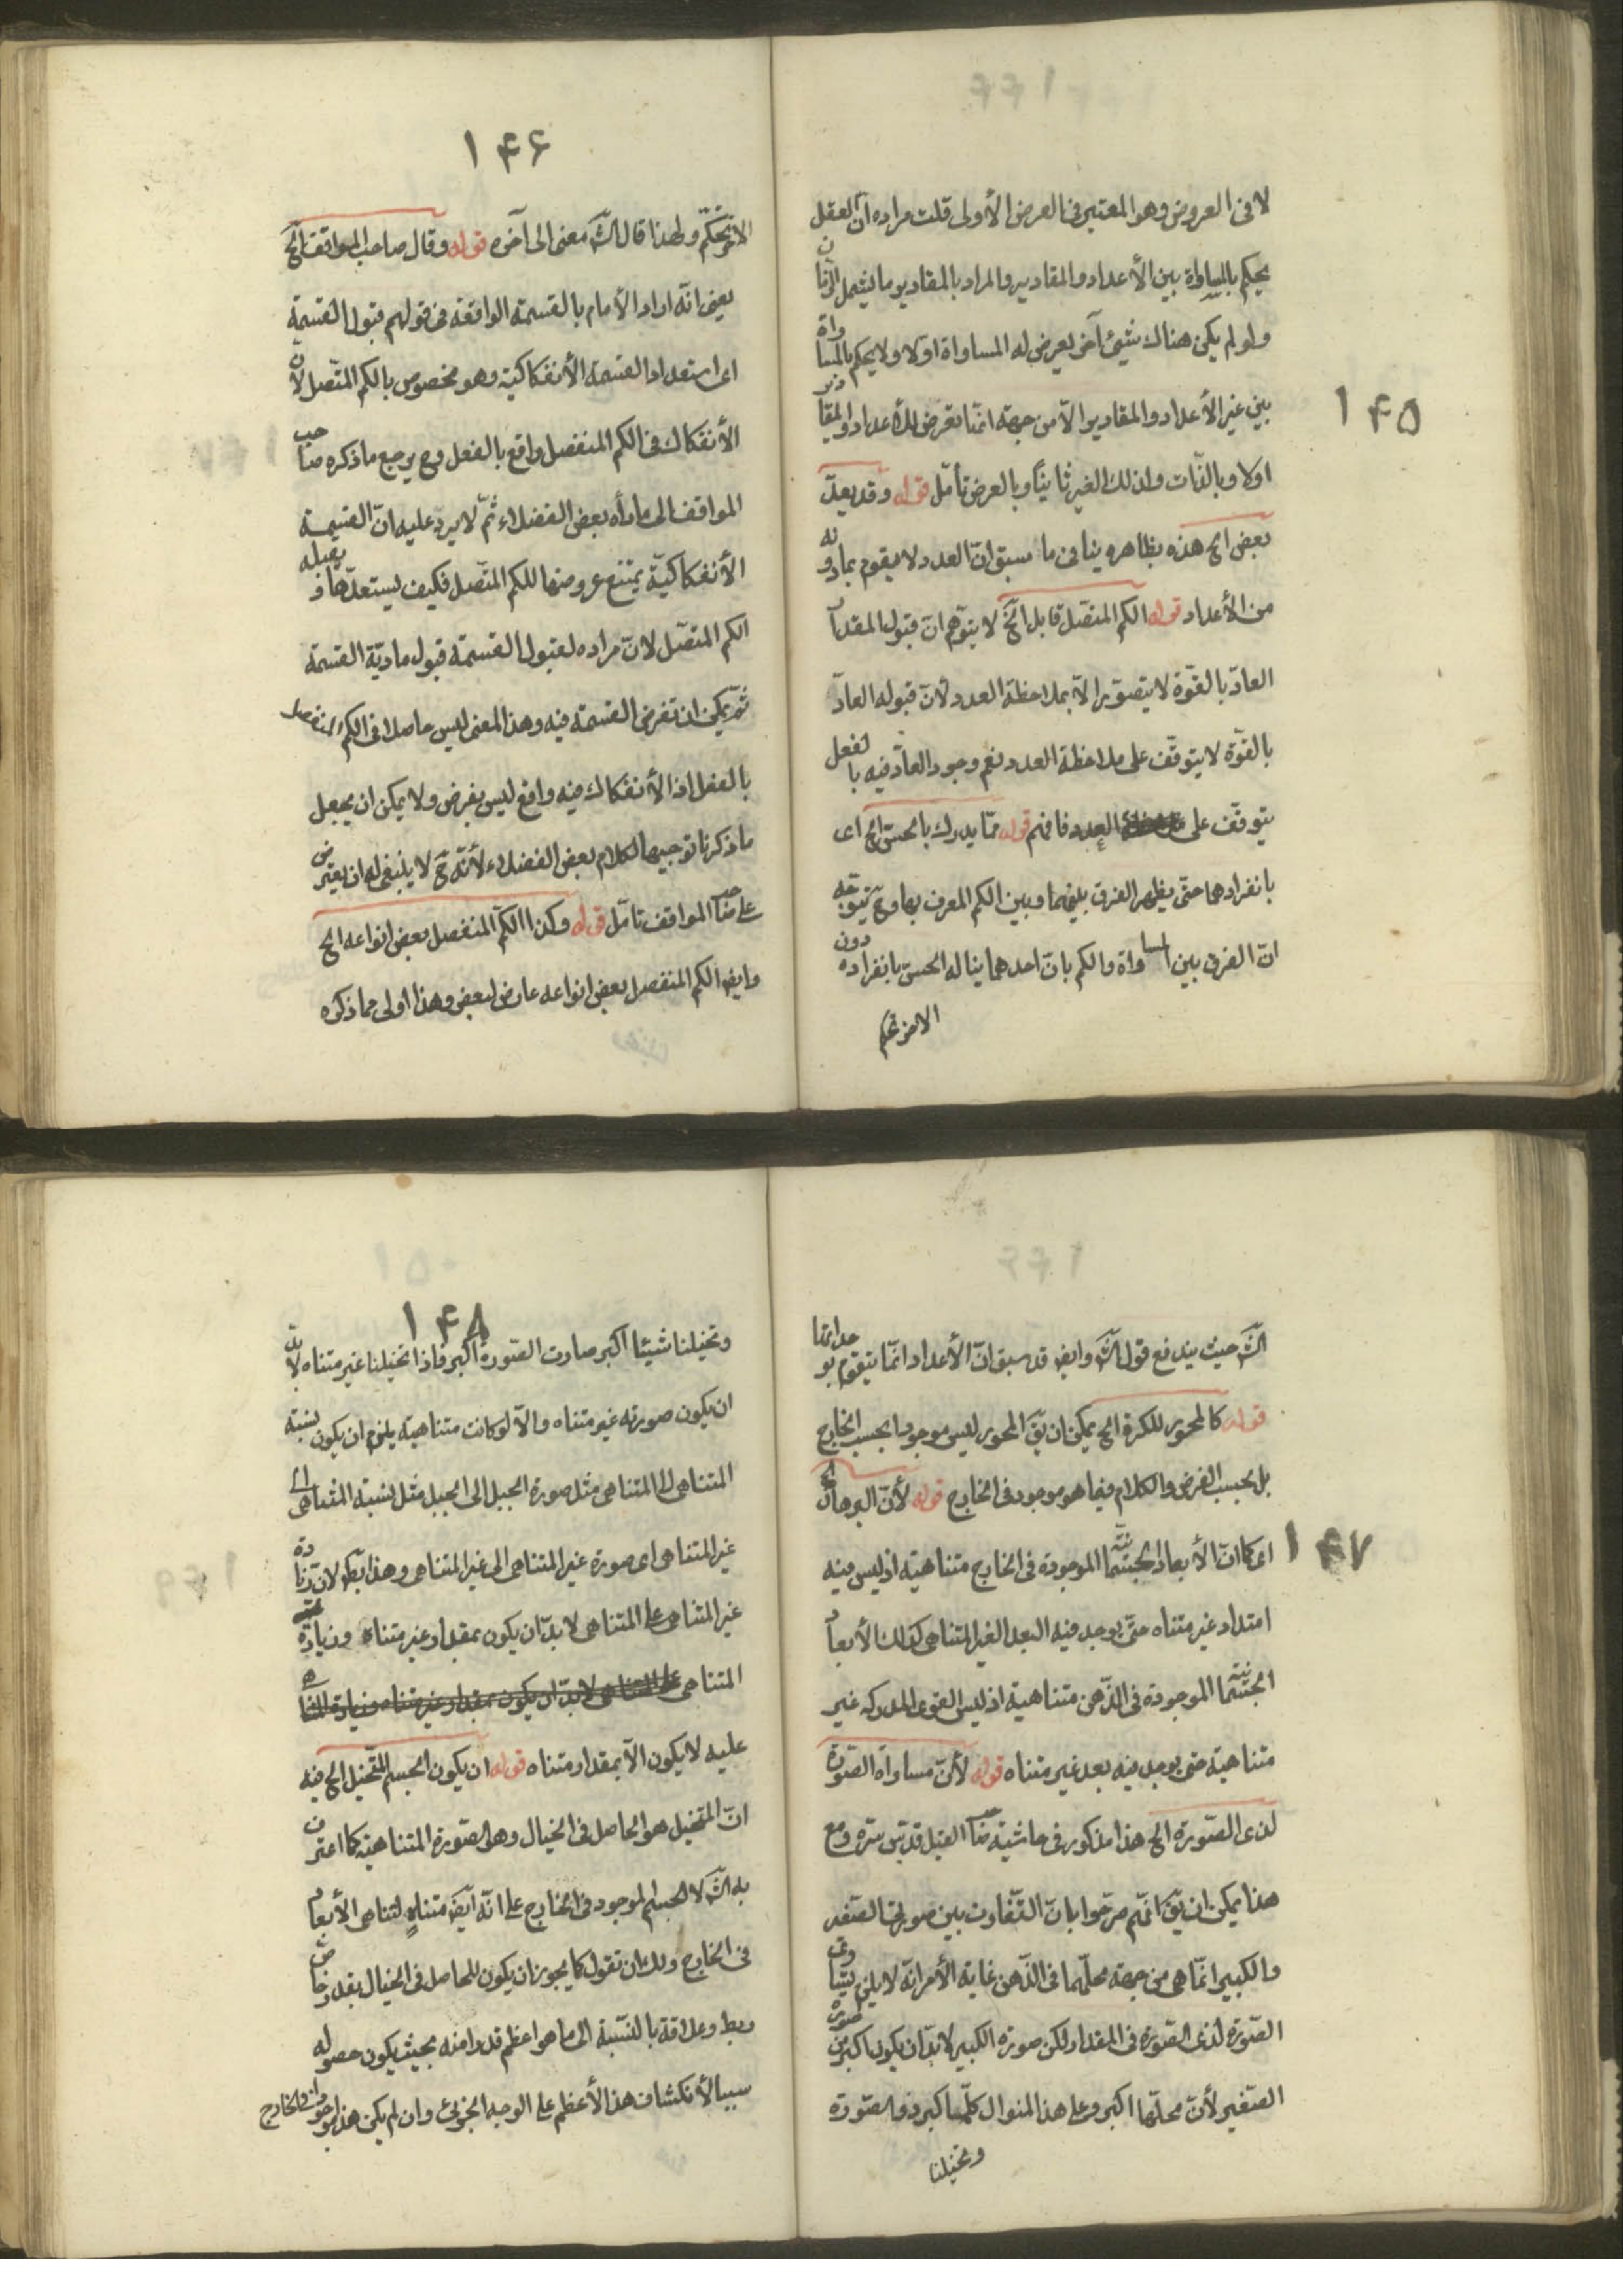 ١٤٥
لا فى العروض وهو المعتبر فى العرض الأولى قلت مراده ان العقل
يحكم بالمساواة بين الأعداد والمقادير والمراد بالمقادير ما يشمل الزمان
ولو لم يكن هناك شيئ آخر يعرض له المساواة اولا ولا يحكم بالمساواة
بين غير الأعداد والمقادير الّا من جهة انّها تعرض للأعداد والمقادير
اولا وبالذّات ولذلك الغير ثانياً وبالعرض تأمّل قوله وقد يعلّ
بعض الخ هذه بظاهره ينافى ما سبق انّ العدد لا يقوم بمادونه
من الأعداد قوله الكم المتصّل قابل الخ لا يتوّهم انّ قبول المقدار
العادّ بالقوّة لا يتصوّر الّا بملاحظة العدد لأنّ قبوله العادّ
بالقوّة لا يتوقّف على ملاحظة العدد نعم وجود العادّ فيه بالفعل
يتوقّف على العدد فافهم قوله ممّا يدرك بالحسّ الخ اى
بانفرادهما حتّى يظهر الفرق بينهما وبين الكم المعرف بهما وح يتوجّه
انّ الفرق بين المساواة والكم بانّ احدهما يناله الحسّ بانفراده دون
الاخر تحكم
١٤٦
الاخر تحكّم ولهذا قال الشّ معنى الى آخره قوله وقال صاحب المواقف الخ
يعنى انّه اراد الأمام بالقسمة الواقعة فى قولهم قبول القسمة
اى استعداد القسمة الأنفكاكيّة وهو مخصوص بالكم المتّصل لأنّ
الأنفكاك فى الكم المنفصل واقع بالفعل وح يرجع ما ذكره صاحب
المواقف الى ما رأه بعض الفضلاء ثمّ لا يرد عليه انّ القسمة
الأنفكاكيّة يمتنع عروضها للكم المتّصل فكيف يستعدّها ويقبله
الكم المتصّل لانّ مراده لقبول القسمة قبول ماديّة القسمة
ثمّ يمكن ان تفرض القسمة فيه وهذا المعنى ليس حاصلا فى الكم المنفصل
بالفعل اذ الأنفكاك فيه واقع ليس بفرض ولا يمكن ان يجعل
ما ذكرنا توجيها لكلام بعض الفضلاء لأنّه ح لا ينبغى له ان يعترض
على صاحب المواقف تامّل قوله وكذا الكمّ المنفصل بعض انواعه الخ
وايض الكم المنفصل بعض انواعه عارض لبعض وهذا اولى مما ذكره
١٤٧
الشّ حيث يندفع قول الشّ وايض قد سبق انّ الأعداد انّما يتقوم بوحداتها
قوله كالمحور للكرة الخ يمكن ان يقّ المحور ليس موجودا بحسب الخارج
بل بحسب الفرض والكلام فيما هو موجود فى الخارج قوله لأنّ البرهان الخ
اى كما انّ الأبعاد الجسمّانيّة الموجودة فى الخارج متناهية اذ ليس فيه
امتداد غير متناه حتّى يوجد فيه البعد الغير المتناهى كذلك الأبعاد
الجسمّانيّة الموجودة فى الذّهن متناهية اذ ليس القوى المدركه غير
متناهية حتى يوجد فيه بعد غير متناه قوله لأنّ مساواة الصّورة
لذى الصّورة الخ هذا مذكور فى حاشية صاحب القيل قدّس سرّه ومع
هذا يمكن ان يقّ انّهم صرّحوا بانّ التّفاوت بين صورتى الصّغير
والكبير انّما هى من جهة محلّهما فى الذّهن غاية الأمر انّه لا يلزم تساوى
الصّورة لذى الصّورة فى المقدار ولكن صورة الكبير لابدّ ان يكون اكبر من صورة
الصّغير لأنّ محلّها اكبر وعلى هذا المنوال كلّما كبر ذو الصّورة
وتخيلنا
١٤٨
وتخيلنا شيئا اكبر صارت الصّورة اكبر فاذا تخيلنا غير متناه لابدّ
ان يكون صورته غير متناه والّا لو كانت متناهية يلزم ان يكون نسبة
المتناهى الى المتناهى مثل صورة الجبل الى الجبل مثل نسبة المتناهى الى
غير المتناهى اى صورة غير المتناهى الى غير المتناهى وهذا بط لانّ زيادة
غير المتناهى على المتناهى لابدّ ان يكون بمقدار غير متناه وزيادة
المتناهى
عليه لا يكون الّا بمقدار متناه قوله ان يكون الجسم المتّخيل الخ فيه
انّ المتخيل هو الحاصل فى الخيال وهو الصّورة المتناهية كما اعترف
به الشّ لا الجسم الموجود فى الخارج على انّه ايضّ متناهٍ لتناهى الأبعاد
فى الخارج ولك ان تقول كما يجوز ان يكون للحاصل فى الخيال بقدر خاصّ
ربط وعلاقة بالنّسبة الى ما هو اعظم قدرا منه بحيث يكون حصوله
سببا لأنكشاف هذا الأعظم على الوجه الجزئى وان لم يكن هذا موجودا فى الخارج